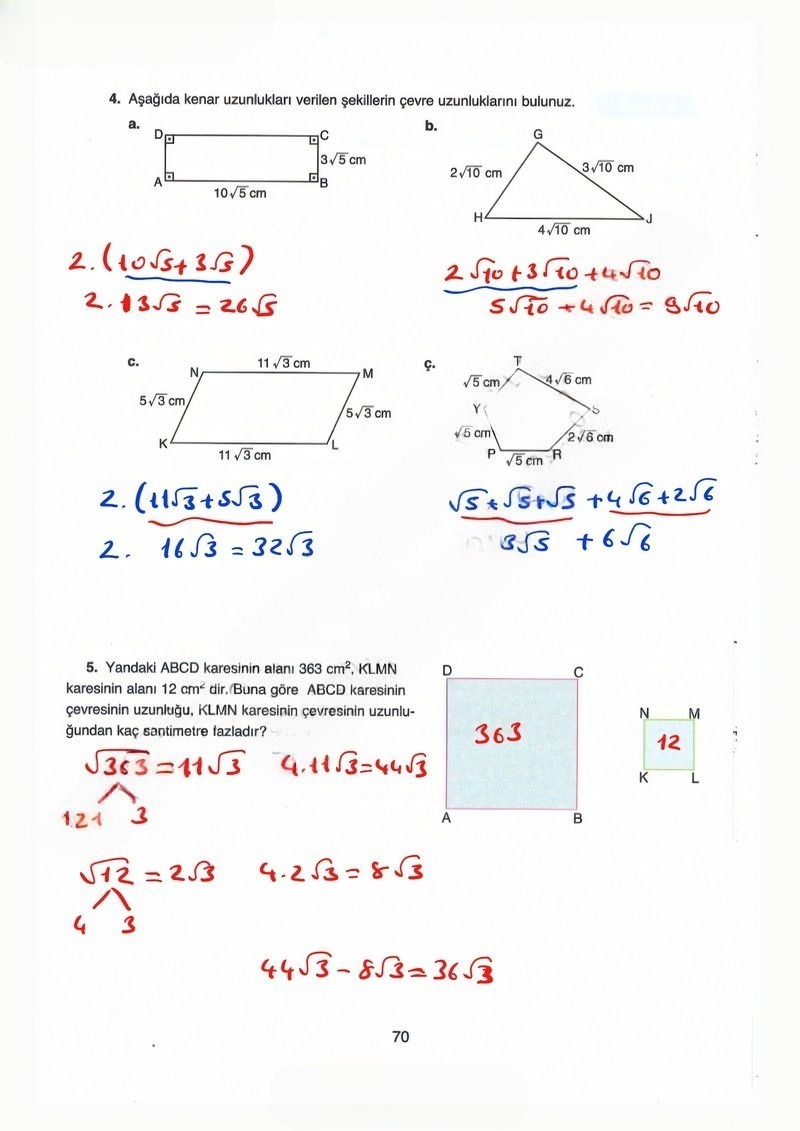 4. Aşağıda kenar uzunlukları verilen şekillerin çevre uzunluklarını bulunuz.
a.
D
C
3√5 cm
A
B
10√5 cm
2.(10√5+3√5)
2.13√5 = 26√5
b.
G
2√10 cm
3√10 cm
H
J
4√10 cm
2√10+3√10+4√10
5√10+4√10= 9√10
c.
11√3 cm
N
M
5√3 cm
5√3 cm
K
L
11√3 cm
2.(11√3+5√3)
2. 16√3 = 32√3
ç.
T
√5 cm
4√6 cm
Y
S
√5 cm
2√6 cm
P
R
√5 cm
√5+√5+√5 +4√6+2√6
3√5 +6√6
5. Yandaki ABCD karesinin alanı 363 cm², KLMN
karesinin alanı 12 cm² dir. Buna göre ABCD karesinin
çevresinin uzunluğu, KLMN karesinin çevresinin uzunlu-
ğundan kaç santimetre fazladır?
D
C
363
A
B
N M
12
K L
√363 = 11√3 4.11√3=44√3
121 3
√12 = 2√3 4.2√3 = 8√3
4 3
44√3 - 8√3 = 36√3
70